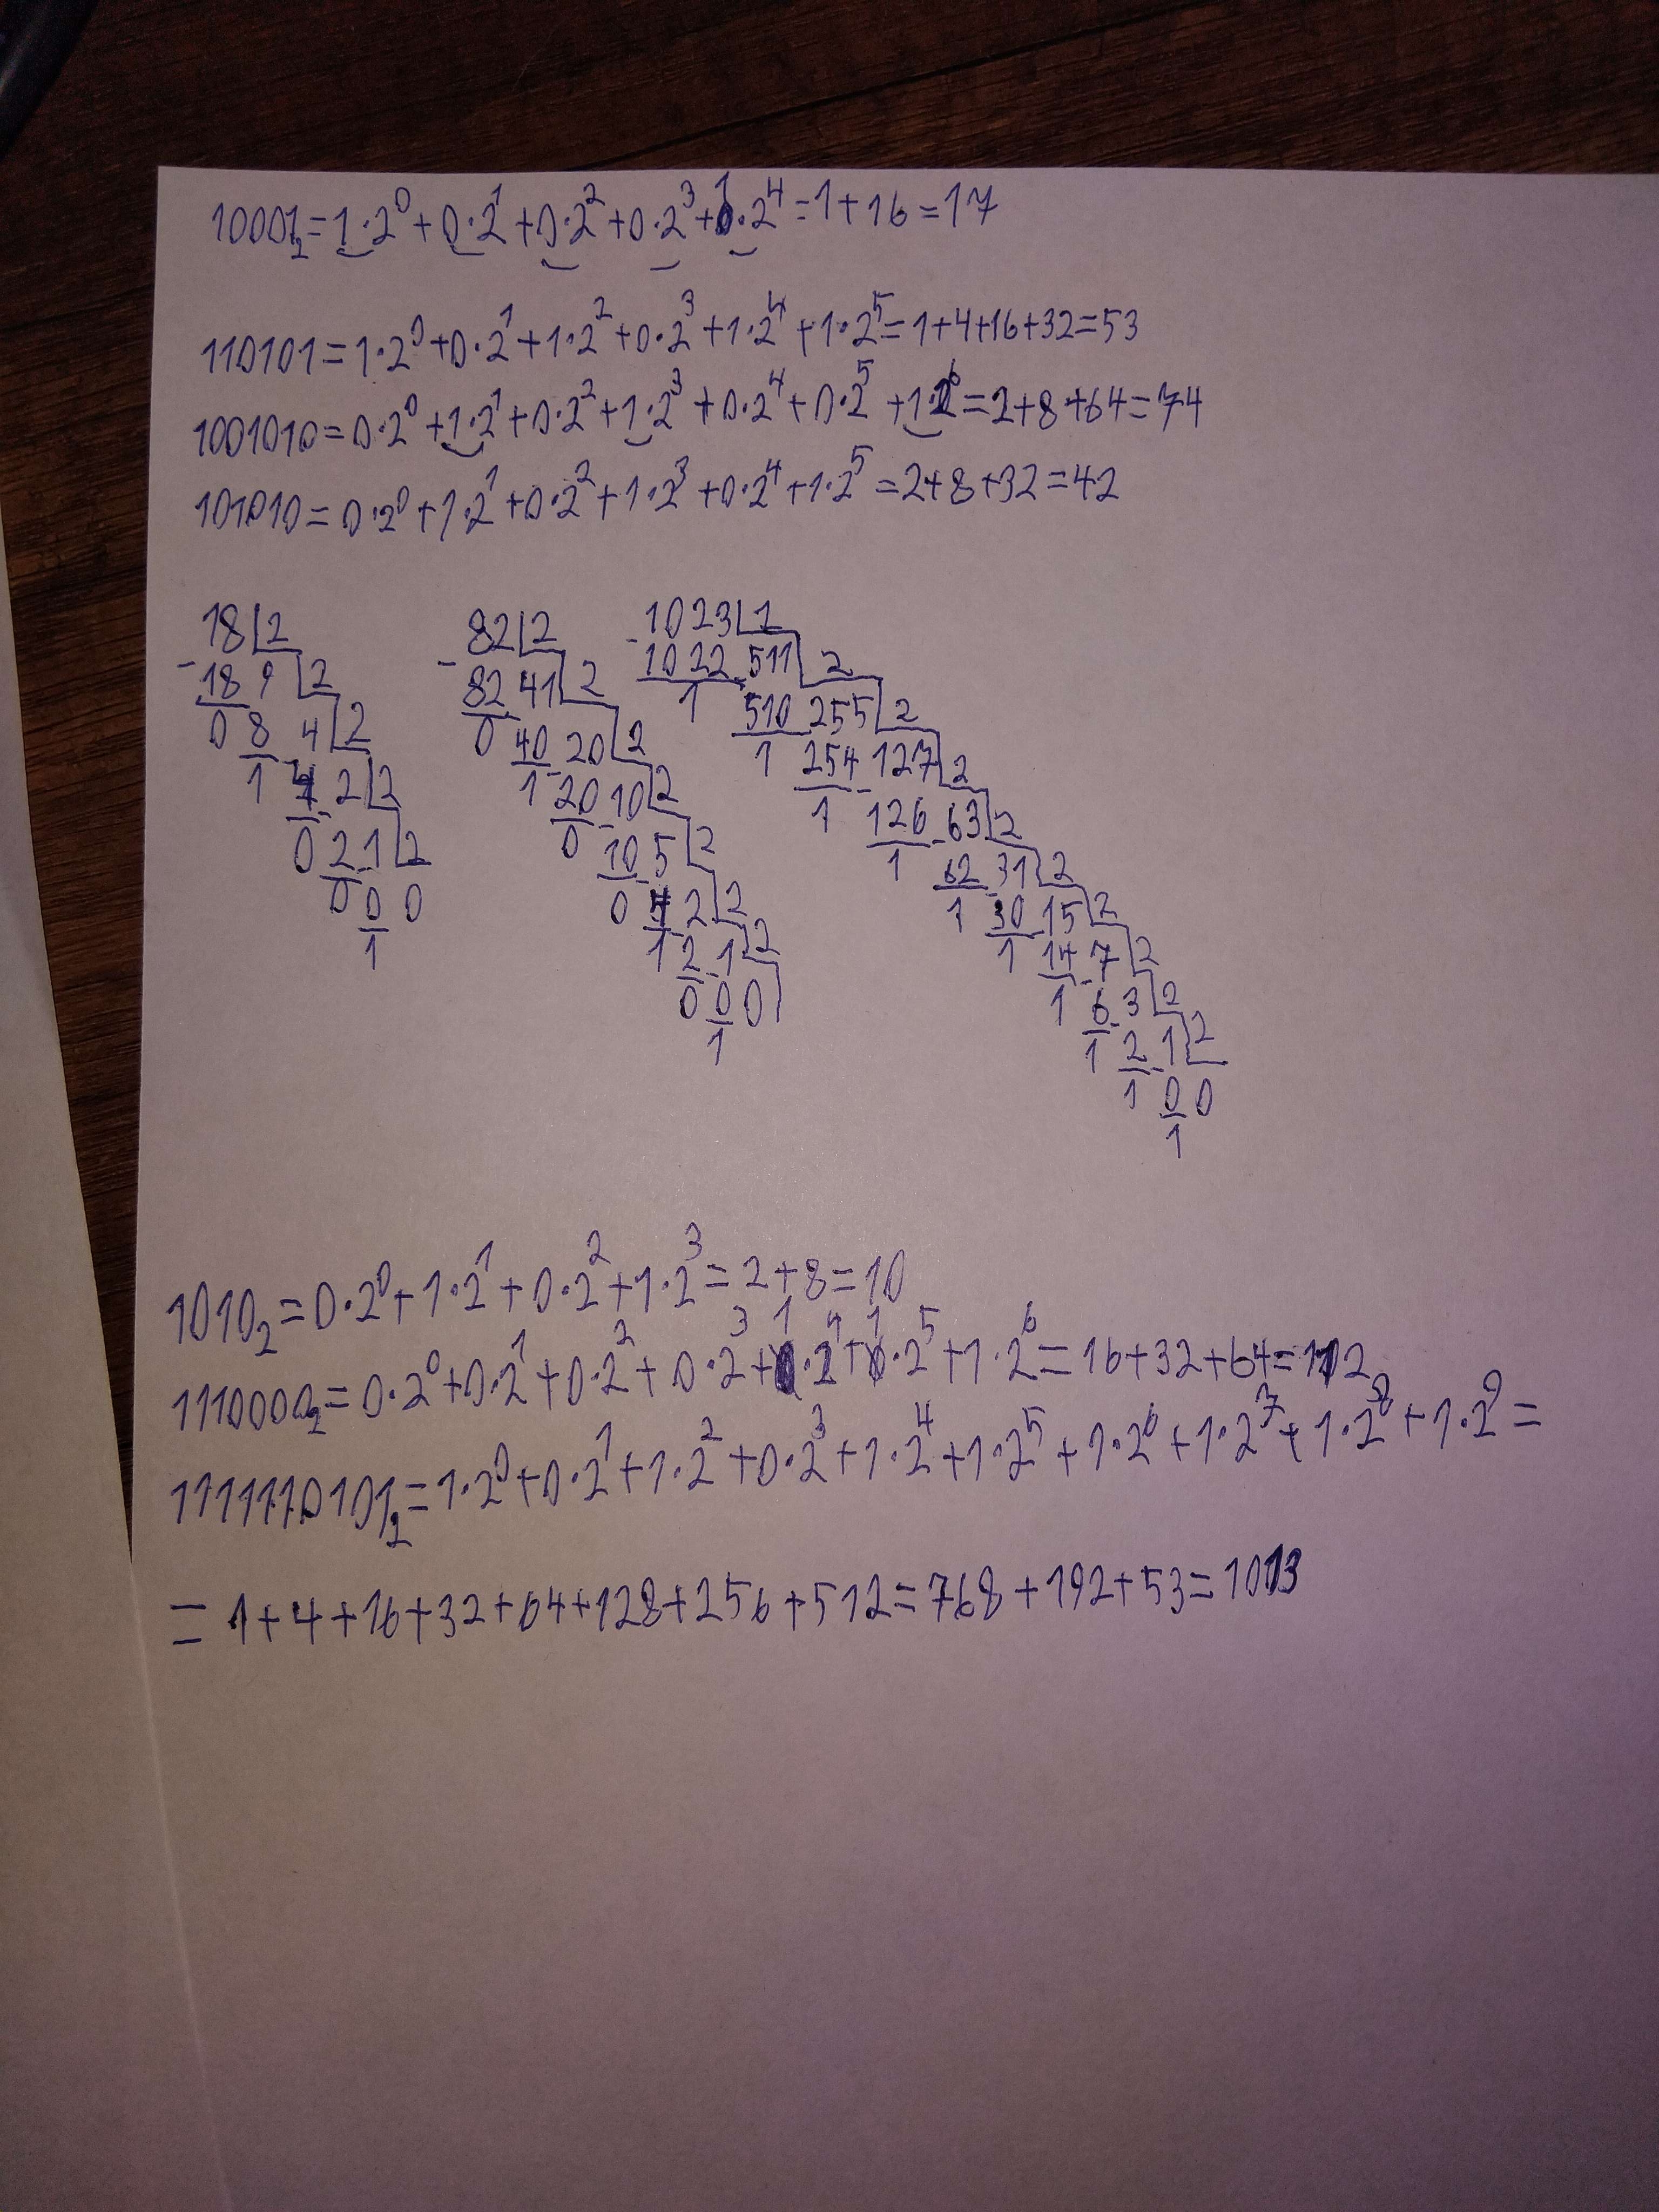 10001₂=1·2⁰+0·2¹+0·2²+0·2³+1·2⁴=1+16=17
110101=1·2⁰+0·2¹+1·2²+0·2³+1·2⁴+1·2⁵=1+4+16+32=53
1001010=0·2⁰+1·2¹+0·2²+1·2³+0·2⁴+0·2⁵+1·2⁶=2+8+64=74
101010=0·2⁰+1·2¹+0·2²+1·2³+0·2⁴+1·2⁵=2+8+32=42
18 2
-18 9 2
0 8 4 2
1 4 2 2
0 2 1 2
0 0 0
1
82 2
-82 41 2
0 40 20 2
1 20 10 2
0 10 5 2
0 4 2 2
1 2 1 2
0 0 0
1
1023 2
-1022 511 2
1 510 255 2
1 254 127 2
1 126 63 2
1 62 31 2
1 30 15 2
1 14 7 2
1 6 3 2
1 2 1 2
1 0 0
1
1010₂=0·2⁰+1·2¹+0·2²+1·2³=2+8=10
1110000₂=0·2⁰+0·2¹+0·2²+0·2³+1·2⁴+1·2⁵+1·2⁶=16+32+64=112
1111110101₂=1·2⁰+0·2¹+1·2²+0·2³+1·2⁴+1·2⁵+1·2⁶+1·2⁷+1·2⁸+1·2⁹=
=1+4+16+32+64+128+256+512=768+192+53=1013